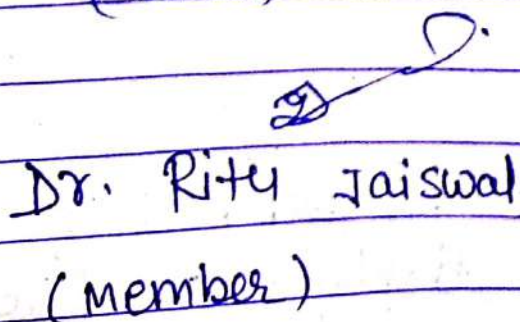 Dr. Ritu Jaiswal
(Member)